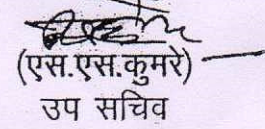 (एस.एस.कुमरे)
उप सचिव